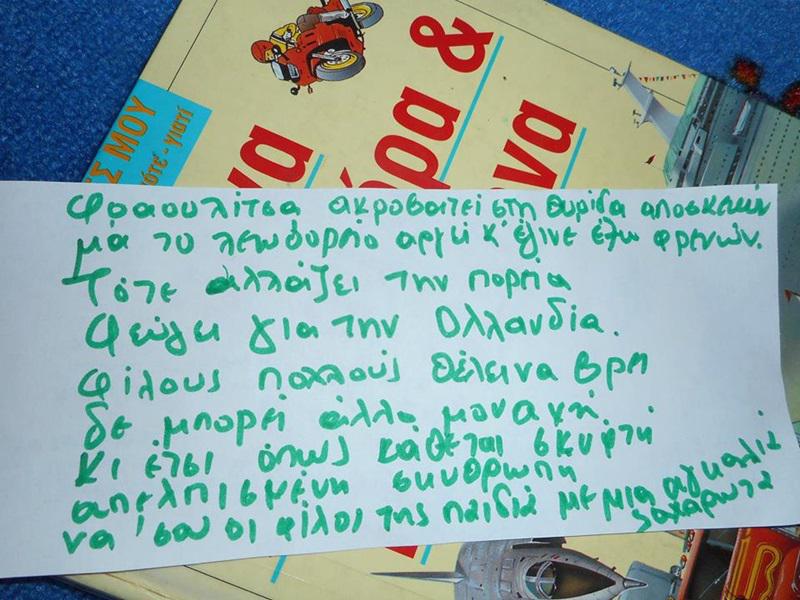 ΜΟΥ
γιατί
&
Φραουλίτσα ακροβατεί στη θυρίδα αποσκευών
μα το λεωφορείο αργεί κ' έγινε έξω φρενών.
Τότε αλλάζει την πορεία
Φεύγει για την Ολλανδία.
Φίλους πολλούς θέλει να βρει
δε μπορεί άλλο μοναχή
κι έτσι όπως κάθεται σκυφτή
απελπισμένη σκυθρωπή
να 'σου οι φίλοι της παιδιά με μια αγκαλιά
ζαχαρωτά